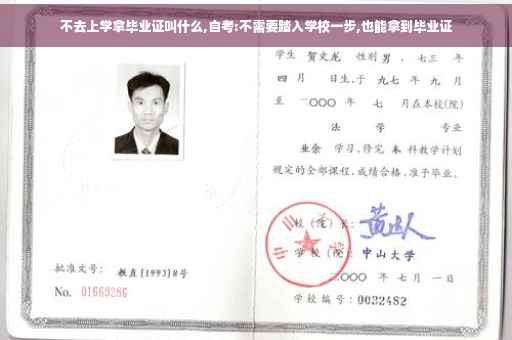 不去上学拿毕业证叫什么,自考:不需要踏入学校一步,也能拿到毕业证
学生 贺文龙 性别 男 、七三 年
四 月 日生,于 九七 年 九 月
至 二○○○ 年 七 月在本校(院)
法 学 专业
业余 学习,修完 本 科教学计划
规定的全部课程,成绩合格,准予毕业。
校(院)长:
学校(院): 中山大学
二○○○ 年 七 月 一 日
批准文号: 教直(1993)8号
No. 01669286
学校编号: 0032482